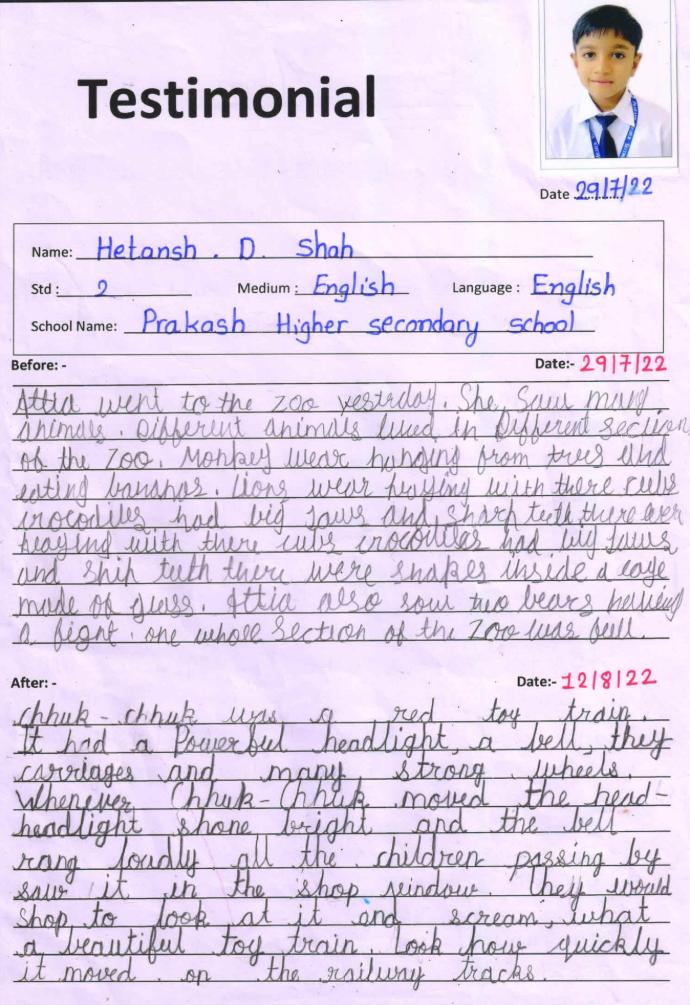 Testimonial
Date 29/7/22
Name: Hetansh . D. Shah
Std : 2 Medium : English Language : English
School Name: Prakash Higher secondary school
Before: - Date:- 29/7/22
Attia went to the zoo yestrday. She, Saw many
animals. Different animals lived in Different section
of the Zoo. Monkey wear hanging from trees and
eating bananas. Lions wear with there cubs
crocodiles had big Jaws and sharp teeth there
with there cubs crocodiles had big Jaws
and teeth there were snakes inside a cage
made of glass. Attia also saw two bears having
a fight. one whole Section of the Zoo was full.
After: - Date:- 12/8/22
Chhuk - chhuk was a red toy train.
It had a Powerful headlight, a bell, they
carriages and many strong wheels.
Whenever Chhuk-Chhuk moved the head-
headlight shone bright and the bell
rang loudly all the children passing by
saw it in the shop window. They would
shop to look at it and scream, what
a beautiful toy train. Look how quickly
it moved on the railway tracks.